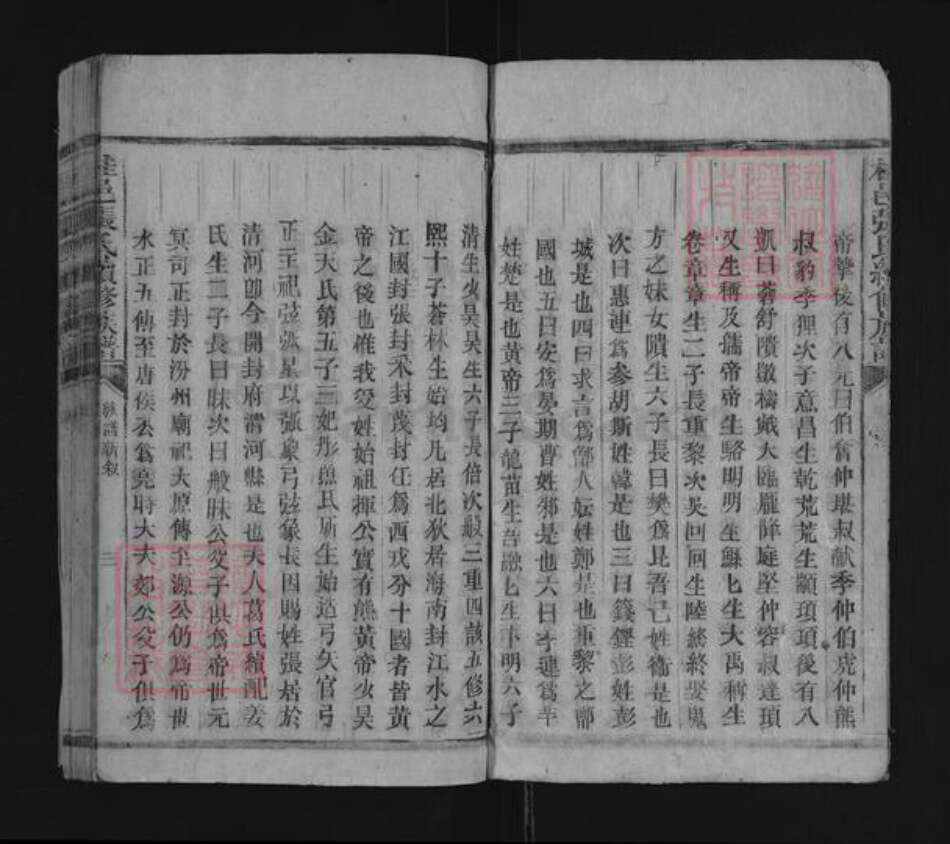 帝摯後有八元曰伯奮仲堪叔獻季仲伯虎仲熊
叔豹季狸次子意昌生乾荒荒生顓頊頊後有八
凱曰蒼舒隤敳檮戭大臨龐降庭堅仲容叔達頊
又生稱及儒帝帝生駱明明生鯀鯀生大禹稱生
卷章章生二子長重黎次吳回回生陸終終娶鬼
方之妹女隤生六子長曰樊為昆吾己姓衛是也
次曰惠連為參胡斯姓韓是也三曰籛鏗彭姓彭
城是也四曰求言為鄶人妘姓鄭是也重黎之鄶
國也五曰安為晏期曹姓邾是也六曰季連為羋
姓楚是也黃帝三子龍苗生吾融七生卞明六子
清生少昊昊生六子長倍次般三重四該五修六
熙十子蒼林生始均凡居北狄居海南封江水之
江國封張封采封茂封任為西戎分十國者皆黃
帝之後也惟我受姓始祖揮公實有熊黃帝少昊
金天氏第五子三妃彤魚氏所生始造弓矢官弓
正主祀弧弧星以張象弓弦象長因賜姓張居於
清河卽今開封府清河縣是也夫人葛氏續配姜
氏生二子長曰昧次曰般昧公父子俱為帝世元
冥司正封於汾州廟祀太原傳至源公仍為帝世
水正五傳至唐侯公為堯時大夫郊公父子俱為
邑張氏續修族譜
族譜新敘
三